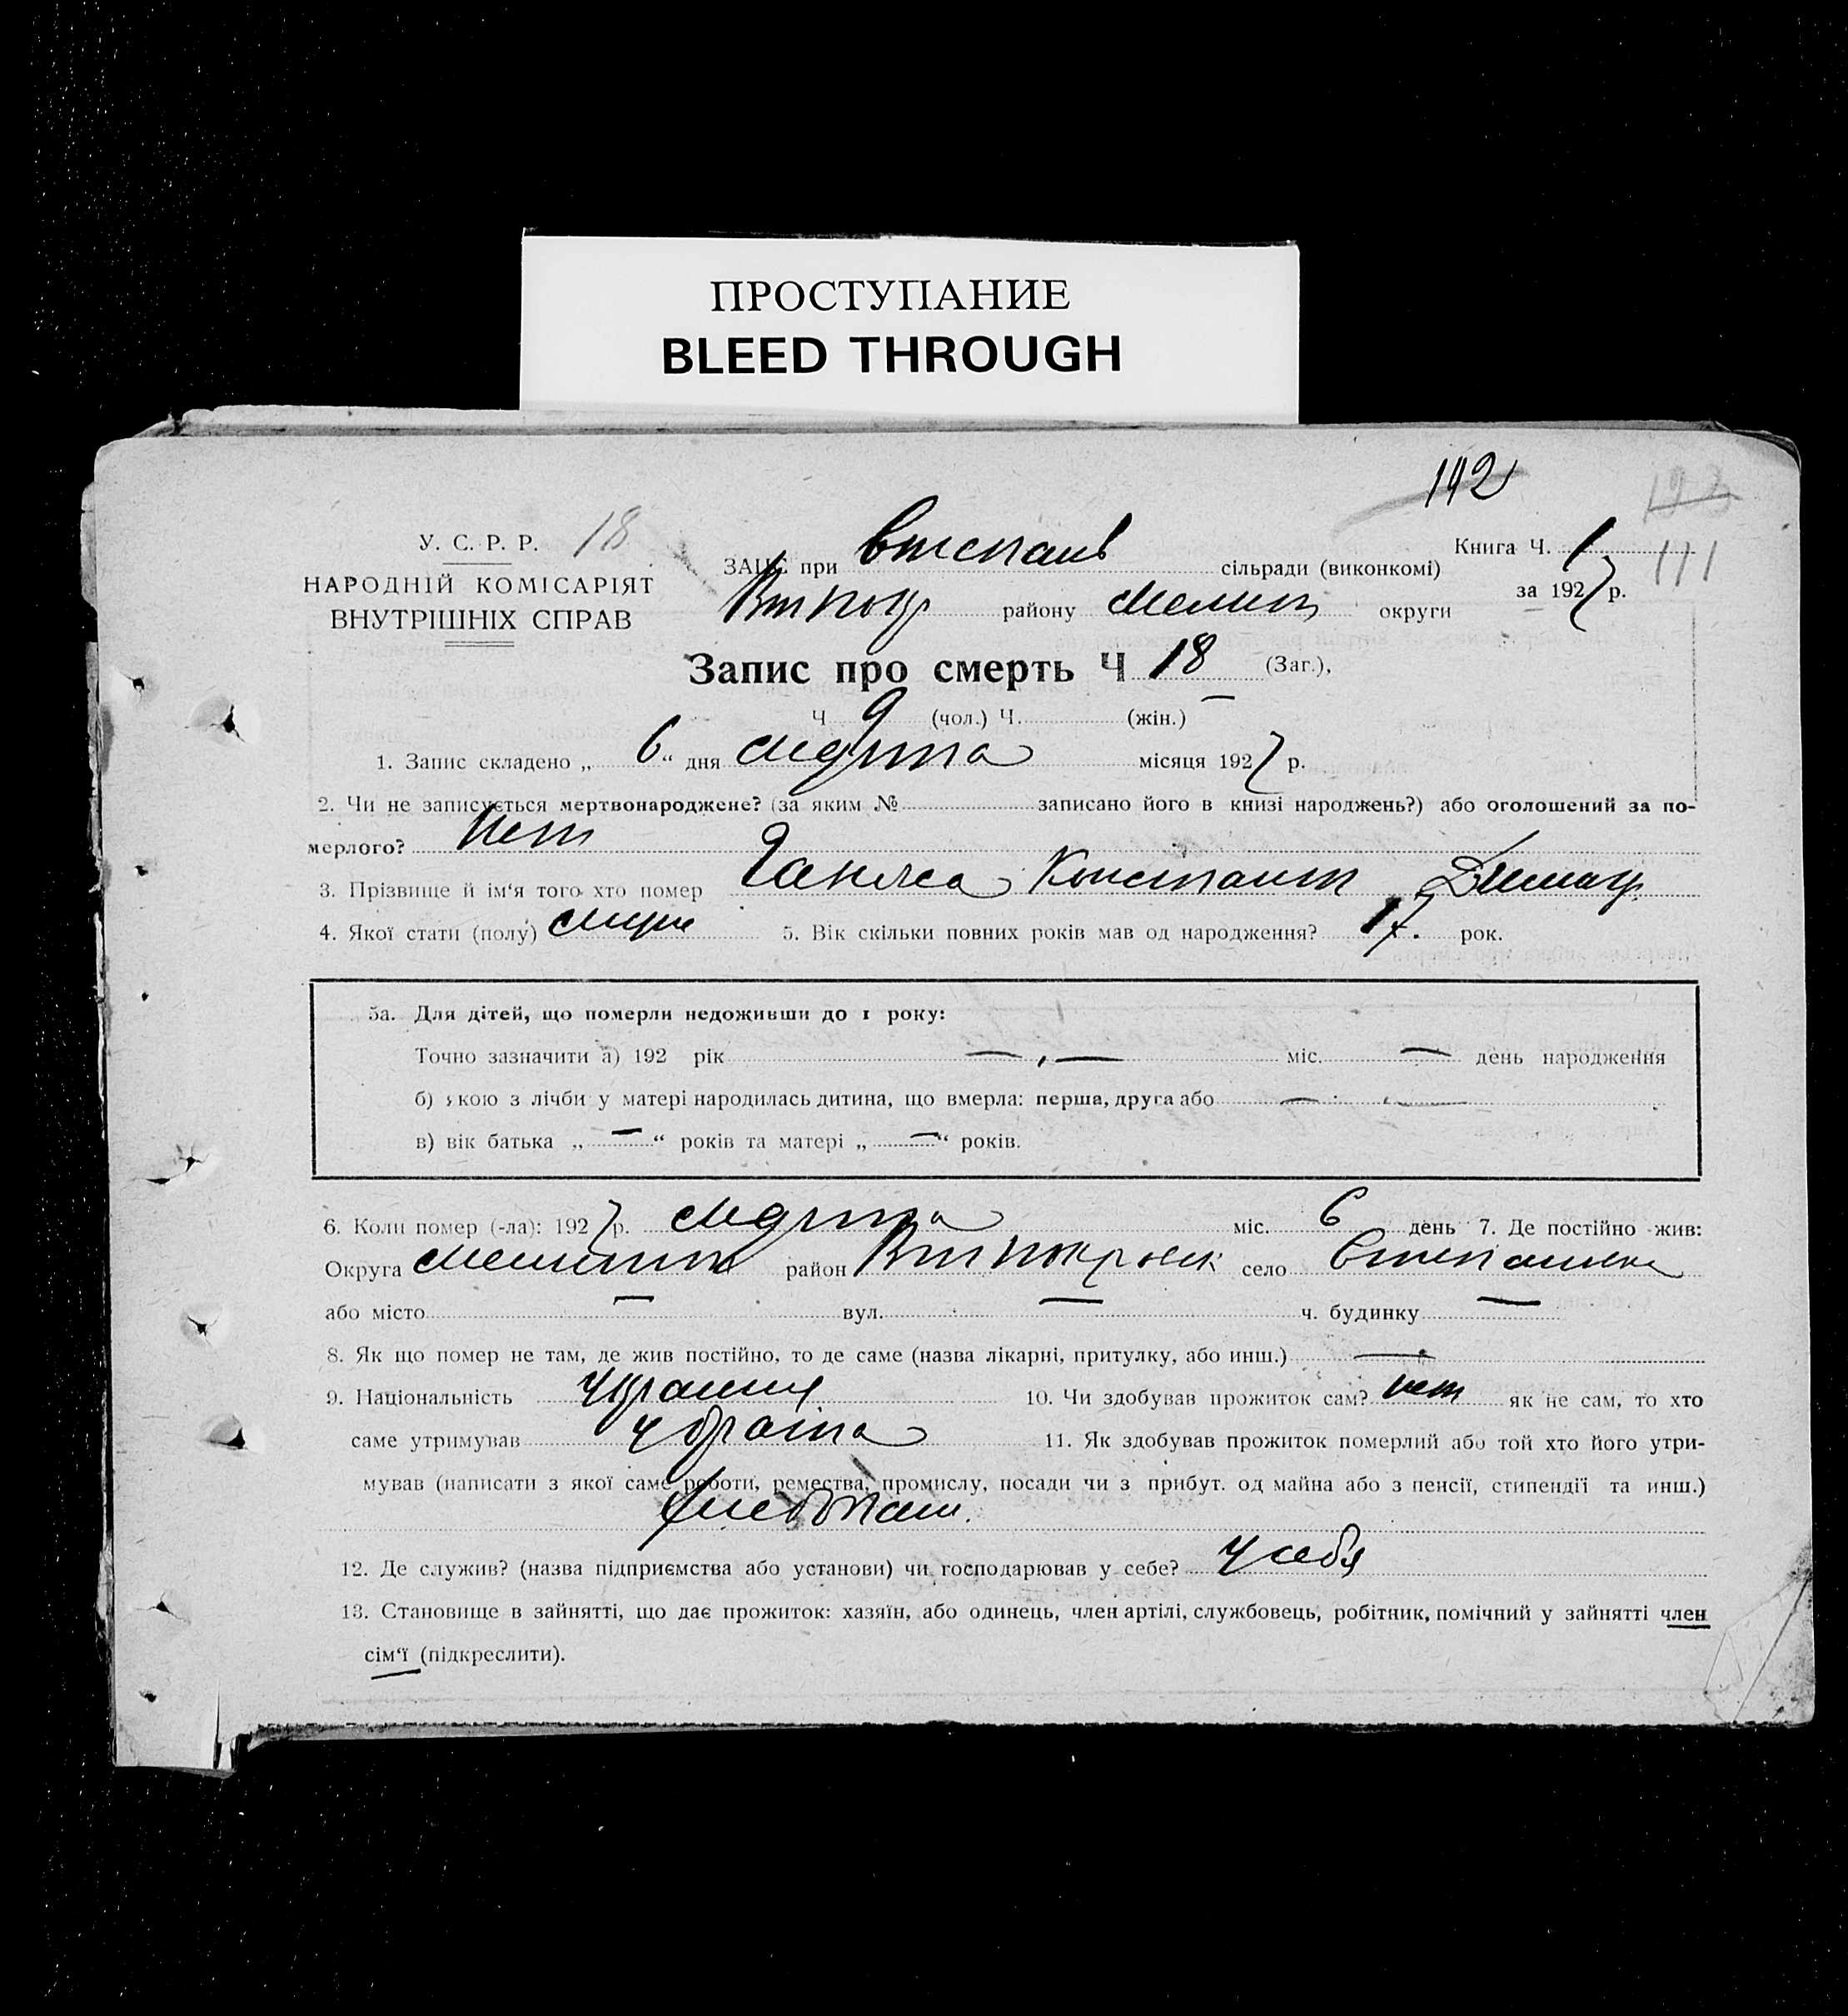 ПРОСТУПАНИЕ
BLEED THROUGH
192
У. С. Р. Р. 18
Книга Ч. 1
111
ЗАЦС при Степанів сільради (виконкомі)
НАРОДНІЙ КОМІСАРІЯТ
за 1927 р.
ВНУТРІШНІХ СПРАВ
району Мелит округи
Запис про смерть Ч 18 (Заг.),
Ч 9 (чол.) Ч. — (жін.)
1. Запис складено „ 6 “ дня марта місяця 1927 р.
2. Чи не записується мертвонароджене? (за яким № записано його в книзі народжень?) або оголошений за по-
мерлого? Нет
3. Прізвище й ім‘я того хто помер Констант Дмитр.
4. Якої стати (полу) муж 5. Вік скільки повних років мав од народження? 17. рок.
5а. Для дітей, що померли недоживши до 1 року:
Точно зазначити а) 192 рік — , — міс. — день народження
б) якою з лічби у матері народилась дитина, що вмерла: перша, друга або — —
в) вік батька „ — “ років та матері „ — “ років.
6. Коли помер (-ла): 1927 р. марта міс. 6 день 7. Де постійно жив:
Округа район село Степановка
або місто — вул. — ч. будинку —
8. Як що помер не там, де жив постійно, то де саме (назва лікарні, притулку, або инш.) —
9. Національність Украинц 10. Чи здобував прожиток сам? нет як не сам, то хто
саме утримував у брата 11. Як здобував прожиток померлий або той хто його утри-
мував (написати з якої саме роботи, ремества, промислу, посади чи з прибут. од майна або з пенсії, стипендії та инш.)
Хлебопаш.
12. Де служив? (назва підприємства або установи) чи господарював у себе? у себя
13. Становище в зайнятті, що дає прожиток: хазяїн, або одинець, член артілі, службовець, робітник, помічний у зайнятті член
сім‘ї (підкреслити).